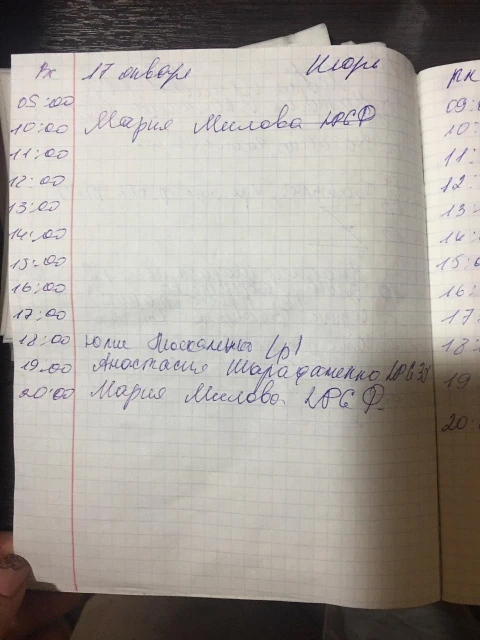 Вс 17 января Игорь
09:00
10:00 Мария Милова LPG Ф
11:00
12:00
13:00
14:00
15:00
16:00
17:00
18:00 Юлия Москаленко (р)
19.00 Анастасия LPG
20:00 Мария Милова LPG Ф
пн
09:0
10:
11:
12:
13
14:
15:0
16:
17
18:
19
20: